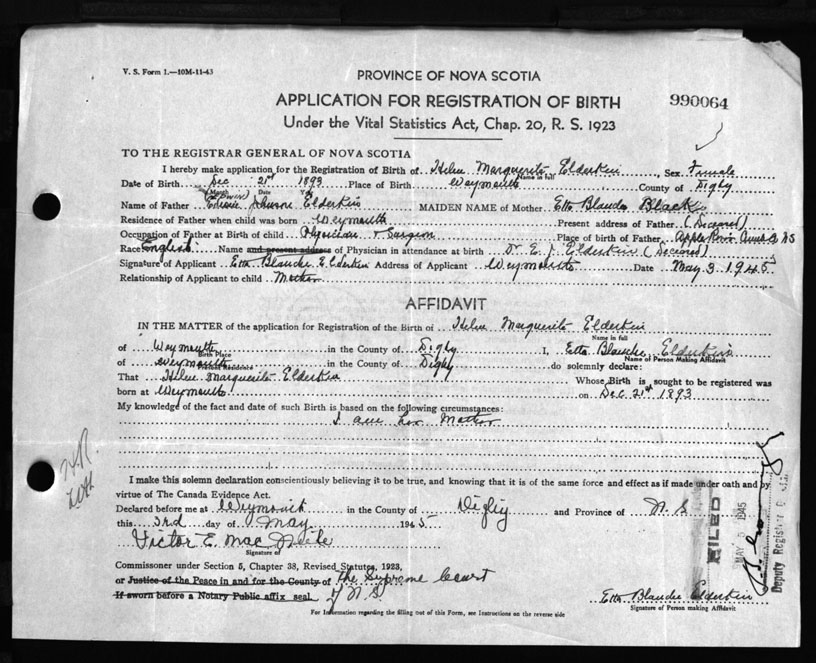 V. S. Form 1.—10M-11-43
PROVINCE OF NOVA SCOTIA
APPLICATION FOR REGISTRATION OF BIRTH
990064
Under the Vital Statistics Act, Chap. 20, R. S. 1923
TO THE REGISTRAR GENERAL OF NOVA SCOTIA
I hereby make application for the Registration of Birth of Helen Marguerite Elderkin, Sex Female
Name in full
Date of Birth Dec 21st 1893 Place of Birth Weymouth County of Digby
Month Date Yr.
(Edwin)
Name of Father Johnson Elderkin MAIDEN NAME of Mother Etta Blanche Black
Residence of Father when child was born Weymouth Present address of Father (Deceased)
Occupation of Father at Birth of child Physician & Surgeon Place of birth of Father, Apple River N S
Race English Name and present address of Physician in attendance at birth Dr E J Elderkin (Deceased)
Signature of Applicant Etta Blanche E Elderkin Address of Applicant Weymouth Date May 3 1945
Relationship of Applicant to child Mother
AFFIDAVIT
IN THE MATTER of the application for Registration of the Birth of Helen Marguerite Elderkin
Name in full
of Weymouth in the County of Digby I, Etta Blanche Elderkin
Birth Place Name of Person Making Affidavit
of Weymouth in the County of Digby do solemnly declare:
Present Residence
That Helen Marguerite Elderkin Whose Birth is sought to be registered was
born at Weymouth on Dec 21st 1893
My knowledge of the fact and date of such Birth is based on the following circumstances:
I am her Mother
I make this solemn declaration conscientiously believing it to be true, and knowing that it is of the same force and effect as if made under oath and by
virtue of The Canada Evidence Act.
Declared before me at Weymouth in the County of Digby and Province of N. S
this 3rd day of May 1945
Victor E. Mac
Signature of
Commissioner under Section 5, Chapter 38, Revised Statutes, 1923,
or Justice of the Peace in and for the County of The Supreme Court
If sworn before a Notary Public affix seal. of N S.
Etta Blanche Elderkin
Signature of Person making Affidavit
For Information regarding the filling out of this Form, see Instructions on the reverse side
FILED
MAY 5 1945
Deputy Registrar